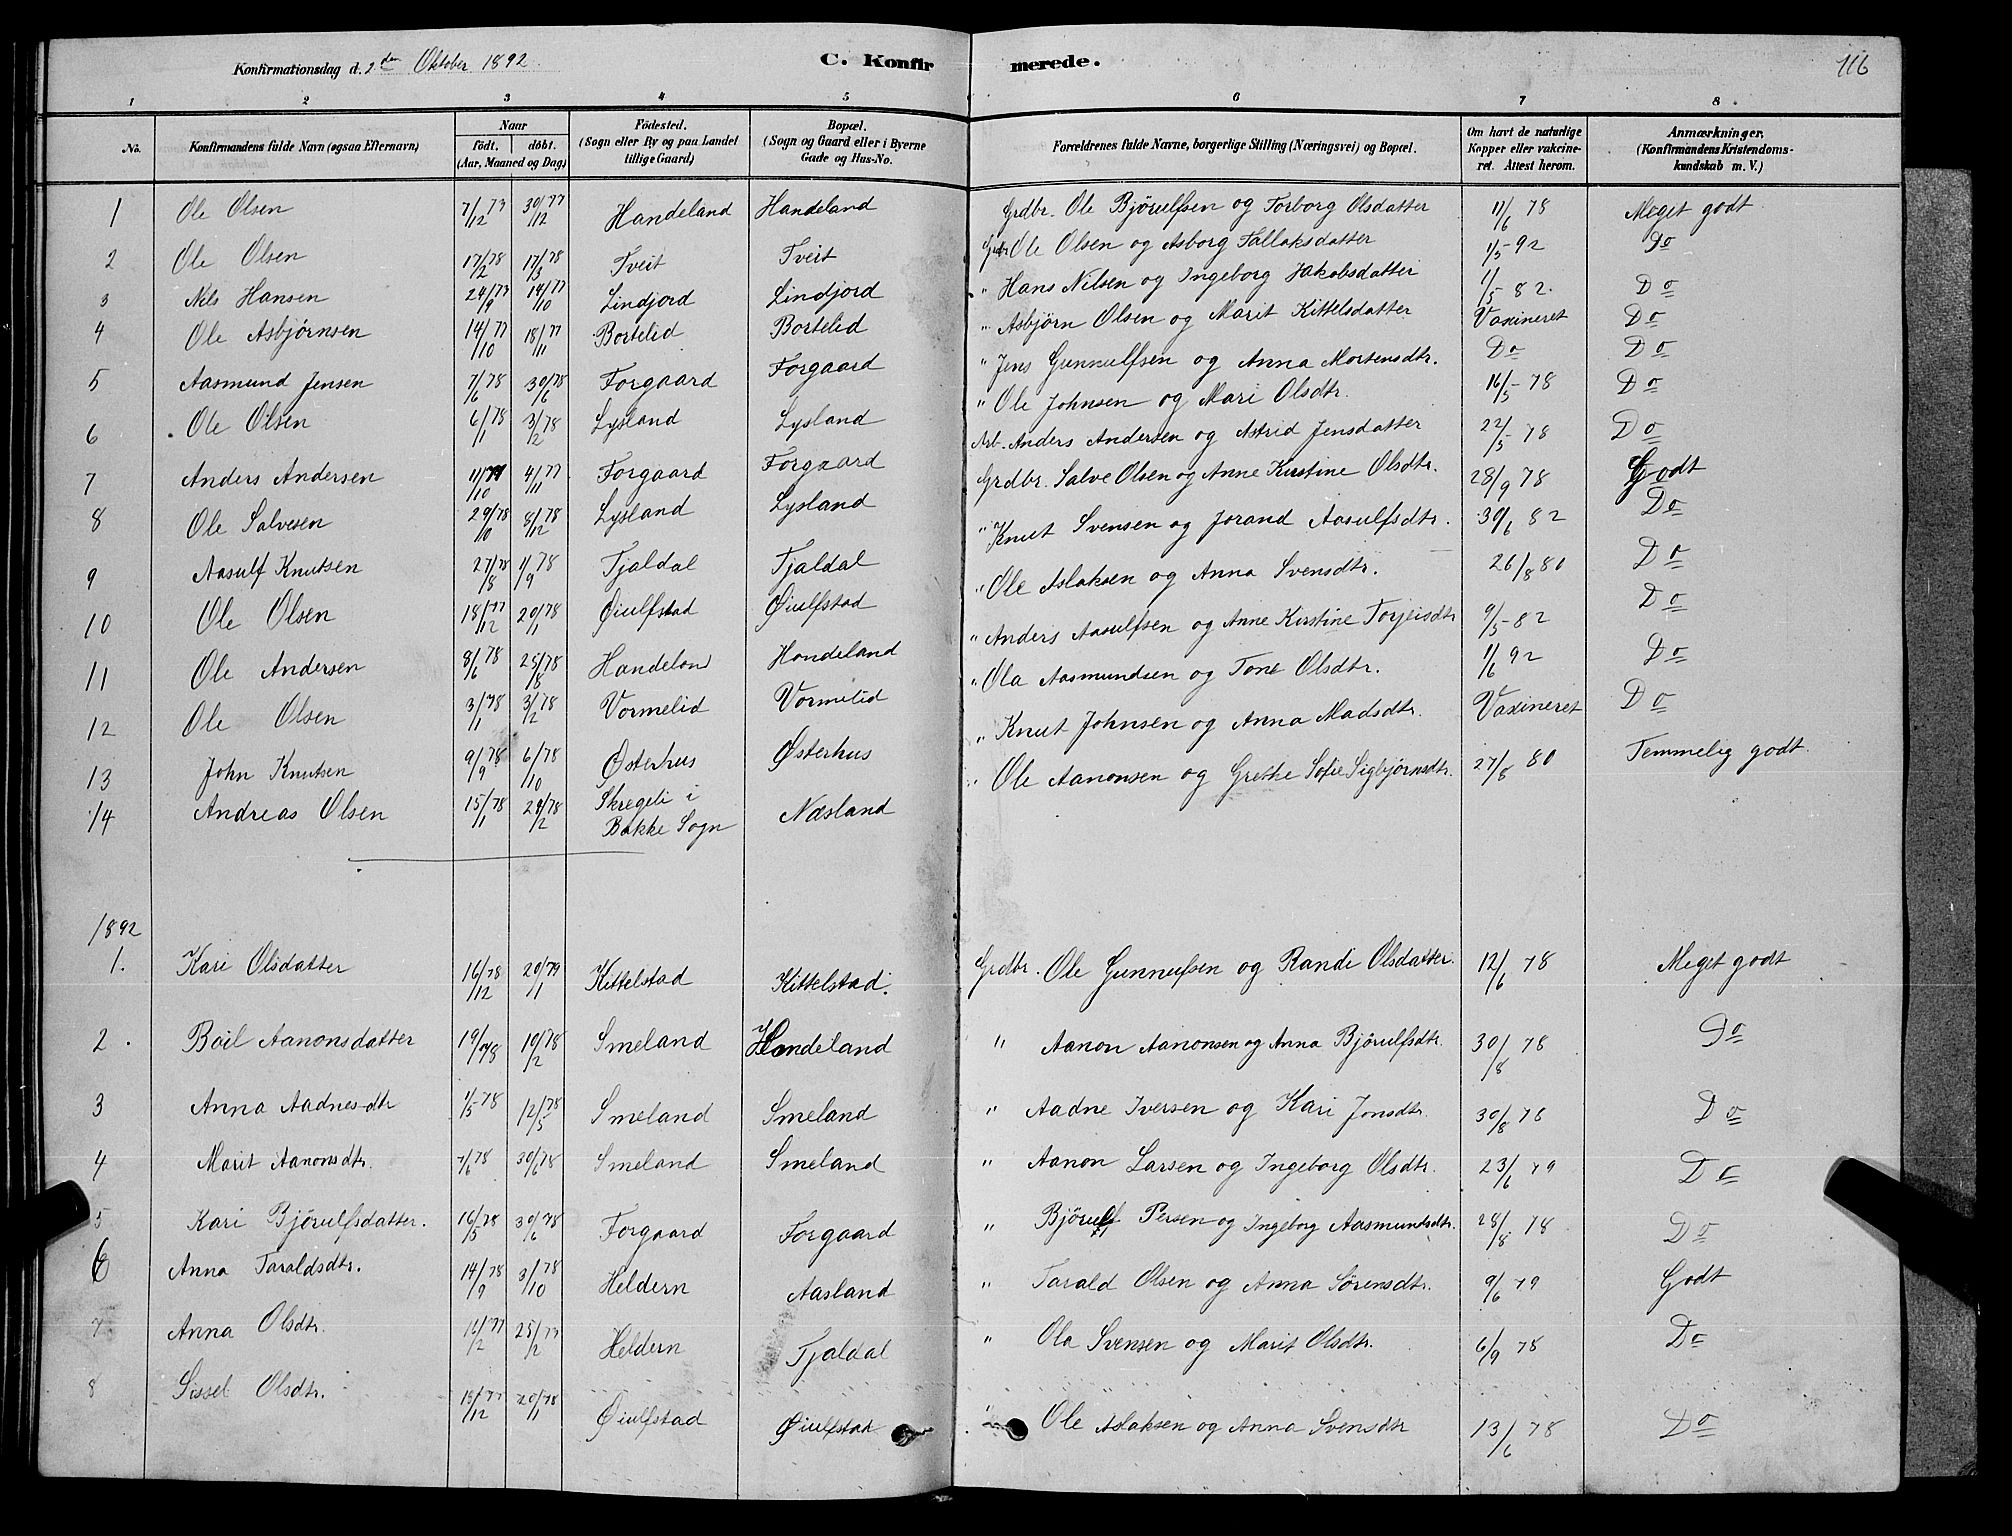 Konfirmationsdag d. 2den Oktober 1892. C. Konfirmerede. 116
1 2 3 4 5 6 7 8
No. Konfirmandens fulde Navn (ogsaa Efternavn) Naar født. døbt. (Aar, Maaned og Dag) Fødested. (Sogn eller By og paa Landet tillige Gaard) Bopæl. (Sogn og Gaard eller i Byerne Gade og Hus-No. Forældrenes fulde Navne, borgerlige Stilling (Næringsvei) og Bopæl. Om havt de naturlige Kopper eller vakcineret. Attest herom. Anmærkninger. (Konfirmandens Kristendomskundskab m. V.)
1 Ole Olsen 7/12 77 30/12 77 Handeland Handeland Grdbr. Ole Bjørulfsen og Torborg Olsdatter 11/6 78 Meget godt
2 Ole Olsen 17/2 78 17/3 78 Tveit Tveit Grdbr Ole Olsen og Asborg Tallaksdatter 1/5 92 Do
3 Nils Hansen 24/9 77 14/10 77 Lindjord Lindjord " Hans Nilsen og Ingeborg Jakobsdatter 1/5 82. Do
4 Ole Asbjørnsen 14/10 77 18/11 77 Bortelid Bortelid " Asbjørn Olsen og Marit Kittelsdatter Vaxineret Do
5 Aasmund Jensen 7/6 78 30/6 78 Forgaard Forgaard " Jens Gunnulfsen og Anna Mortensdtr. Do Do
6 Ole Olsen 6/1 78 3/2 78 Lysland Lysland " Ole Johnsen og Mari Olsdtr. 16/5 78 Do
7 Anders Andersen 11/10 77 4/11 77 Forgaard Forgaard Arb. Anders Andersen og Astrid Jensdatter 22/5 78 Do
8 Ole Salvesen 29/10 78 8/12 78 Lysland Lysland Grdbr. Salve Olsen og Anne Kirstine Olsdtr. 28/9 78 Godt
9 Aasulf Knutsen 27/8 78 1/9 78 Tjaldal Tjaldal " Knut Svensen og Jorand Aasulfsdtr. 30/6 82 Do
10 Ole Olsen 18/12 77 20/1 78 Øiulfstad Øiulfstad " Ole Aslaksen og Anna Svensdtr. 26/8 80 Do
11 Ole Andersen 8/6 78 25/8 78 Handeland Handeland " Anders Aasulfsen og Anne Kirstine Torjeisdtr 9/5 82 Do
12 Ole Olsen 3/1 78 3/2 78 Vormelid Vormelid " Ola Aasmundsen og Tone Olsdtr. 1/6 92 Do
13 John Knutsen 9/9 78 6/10 78 Østerhus Østerhus " Knut Johnsen og Anna Madsdtr. Vaxineret Do
14 Andreas Olsen 15/1 78 24/2 78 Skregeli i Bakke Sogn Næsland " Ole Aanonsen og Grethe Sofie Sigbjørnsdtr. 27/8 80 Temmelig godt.
1892
1. Kari Olsdatter 16/12 78 20/1 79 Kittelstad Kittelstad. Grdbr. Ole Gunnufsen og Randi Olsdatter. 12/6 78 Meget godt
2. Boil Aanonsdatter 19/1 78 10/2 78 Smeland Handeland " Aanon Aanonsen og Anna Bjørulfsdtr. 30/8 78 Do
3 Anna Aadnesdtr 1/5 78 12/5 78 Smeland Smeland " Aadne Iversen og Kari Jonsdtr. 30/8 78 Do
4 Marit Aanonsdtr. 7/6 78 30/6 78 Smeland Smeland " Aanon Larsen og Ingeborg Olsdtr. 23/6 79 Do
5 Kari Bjørulfsdatter. 16/5 78 30/6 78 Forgaard Forgaard " Bjørulf Persen og Ingeborg Aasmundsdtr. 28/8 78 Do
6 Anna Taraldsdtr. 14/9 78 3/10 78 Heldern Aasland " Tarald Olsen og Anna Sørensdtr. 9/6 79 Godt
7 Anna Olsdtr. 16/2 77 25/2 77 Heldern Tjaldal " Ola Svensen og Marit Olsdtr. 6/9 78 Do
8 Sissel Olsdtr. 18/12 77 20/1 78 Øiulfstad Øiulfstad " Ole Aslaksen og Anna Svensdtr 13/6 78 Do